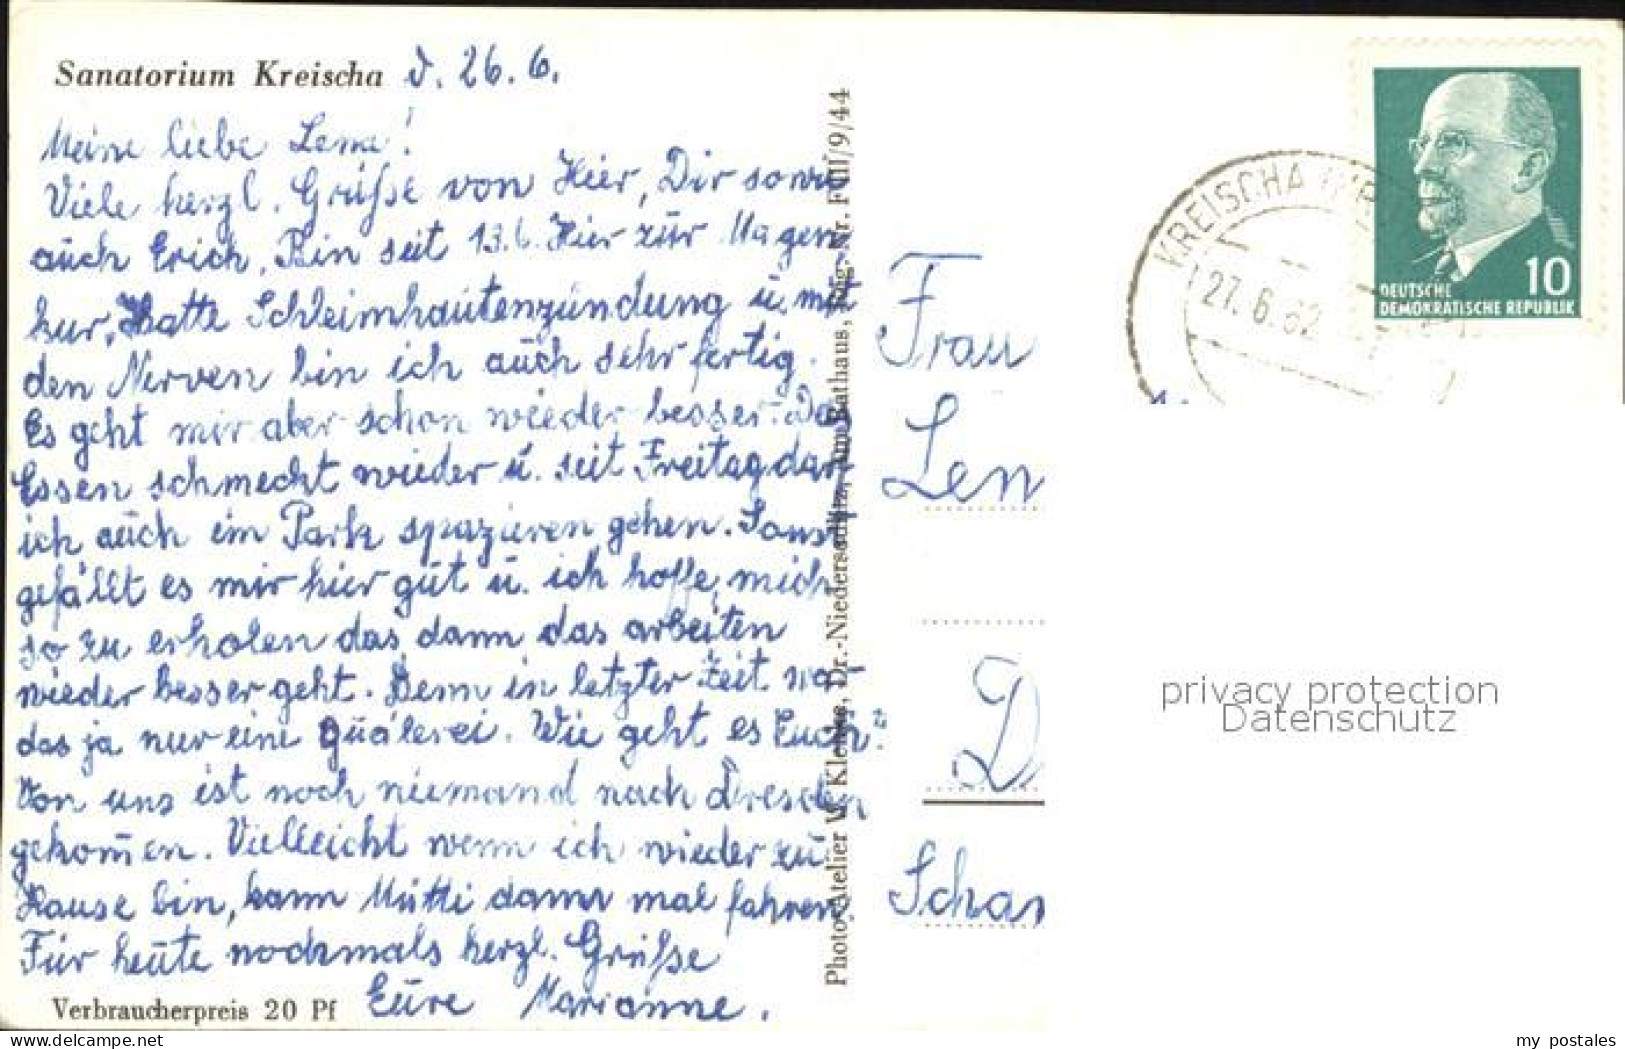 Sanatorium Kreischa d. 26.6.
Meine liebe Lena!
Viele herzl. Grüße von Hier, Dir sowie
auch Erich. Bin seit 13.6. Hier zur Magen
kur, Hatte Schleimhautenzündung u. mit
den Nerven bin ich auch sehr fertig.
Es geht mir aber schon wieder besser. Das
Essen schmeckt wieder u. seit Freitag darf
ich auch im Park spazieren gehen. Sonst
gefällt es mir hier gut u. ich hoffe, mich
so zu erholen das, dann das arbeiten
wieder besser geht. Denn in letzter Zeit war
das ja nur eine Quälerei. Wie geht es Euch?
Von uns ist noch niemand nach Dresden
gekom̄en. Vielleicht wenn ich wieder zu
Hause bin, kann Mutti dann mal fahren.
Für heute nochmals herzl. Grüße
Eure Marianne.
Verbraucherpreis 20 Pf
Photo-Atelier W. Kleine, Dr.-Niedersedlitz, Am Rathaus, Reg.-Nr. F III/9/44
KREISCHA
27.6.62
10
DEUTSCHE
DEMOKRATISCHE REPUBLIK
Frau
Len
D
Schan
privacy protection
Datenschutz
my postales